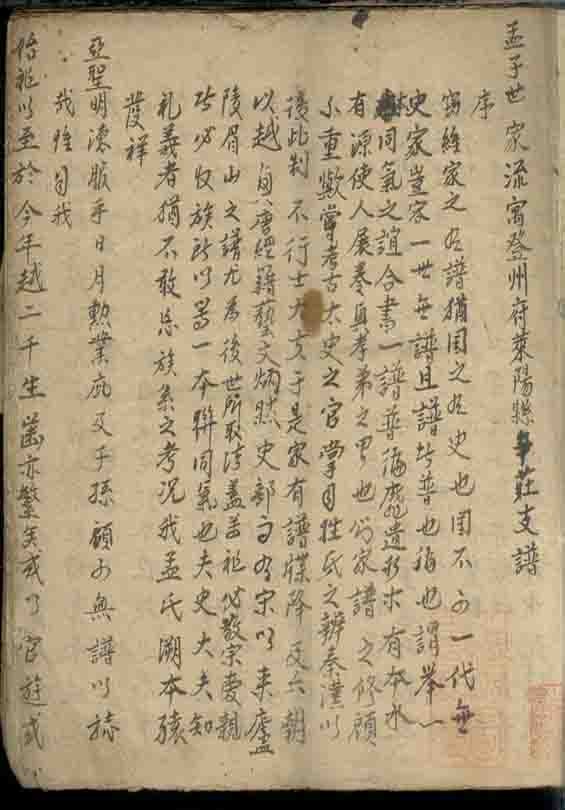 孟子世家流寓登州府萊陽縣莊支譜
序
窃維家之有譜猶国之有史也国不可一代無
史家豈容一世無譜且譜者普也徧也謂举一
本同氣之誼合書一譜普徧靡遺析木有本水
有源使人展卷興孝弟之思也則家譜之修顧
不重歟嘗考古太史之官掌司姓氏之辨秦漢以
後此制不行士大夫于是家有譜牒降及六朝
以越有唐經籍藝文炳然史部而有宋以来廬
陵眉山之譜尤為後世所取法蓋尊祖必敬宗愛親
者必收族所以篤一本聯同氣也夫史大夫知
礼義者猶不敢忘族系之考况我孟氏溯本猿
發祥
亞聖明德眼乎日月勲業庇及子孫顧可無譜以誌
哉維自我
始祖以至於今年越二千生齒亦繁矣或以官遊或以